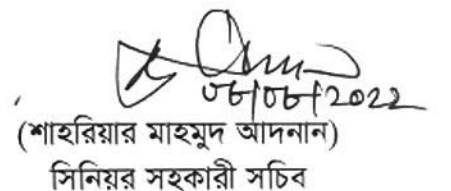 ০৮/০৮/2022
(শাহরিয়ার মাহমুদ আদনান)
সিনিয়র সহকারী সচিব